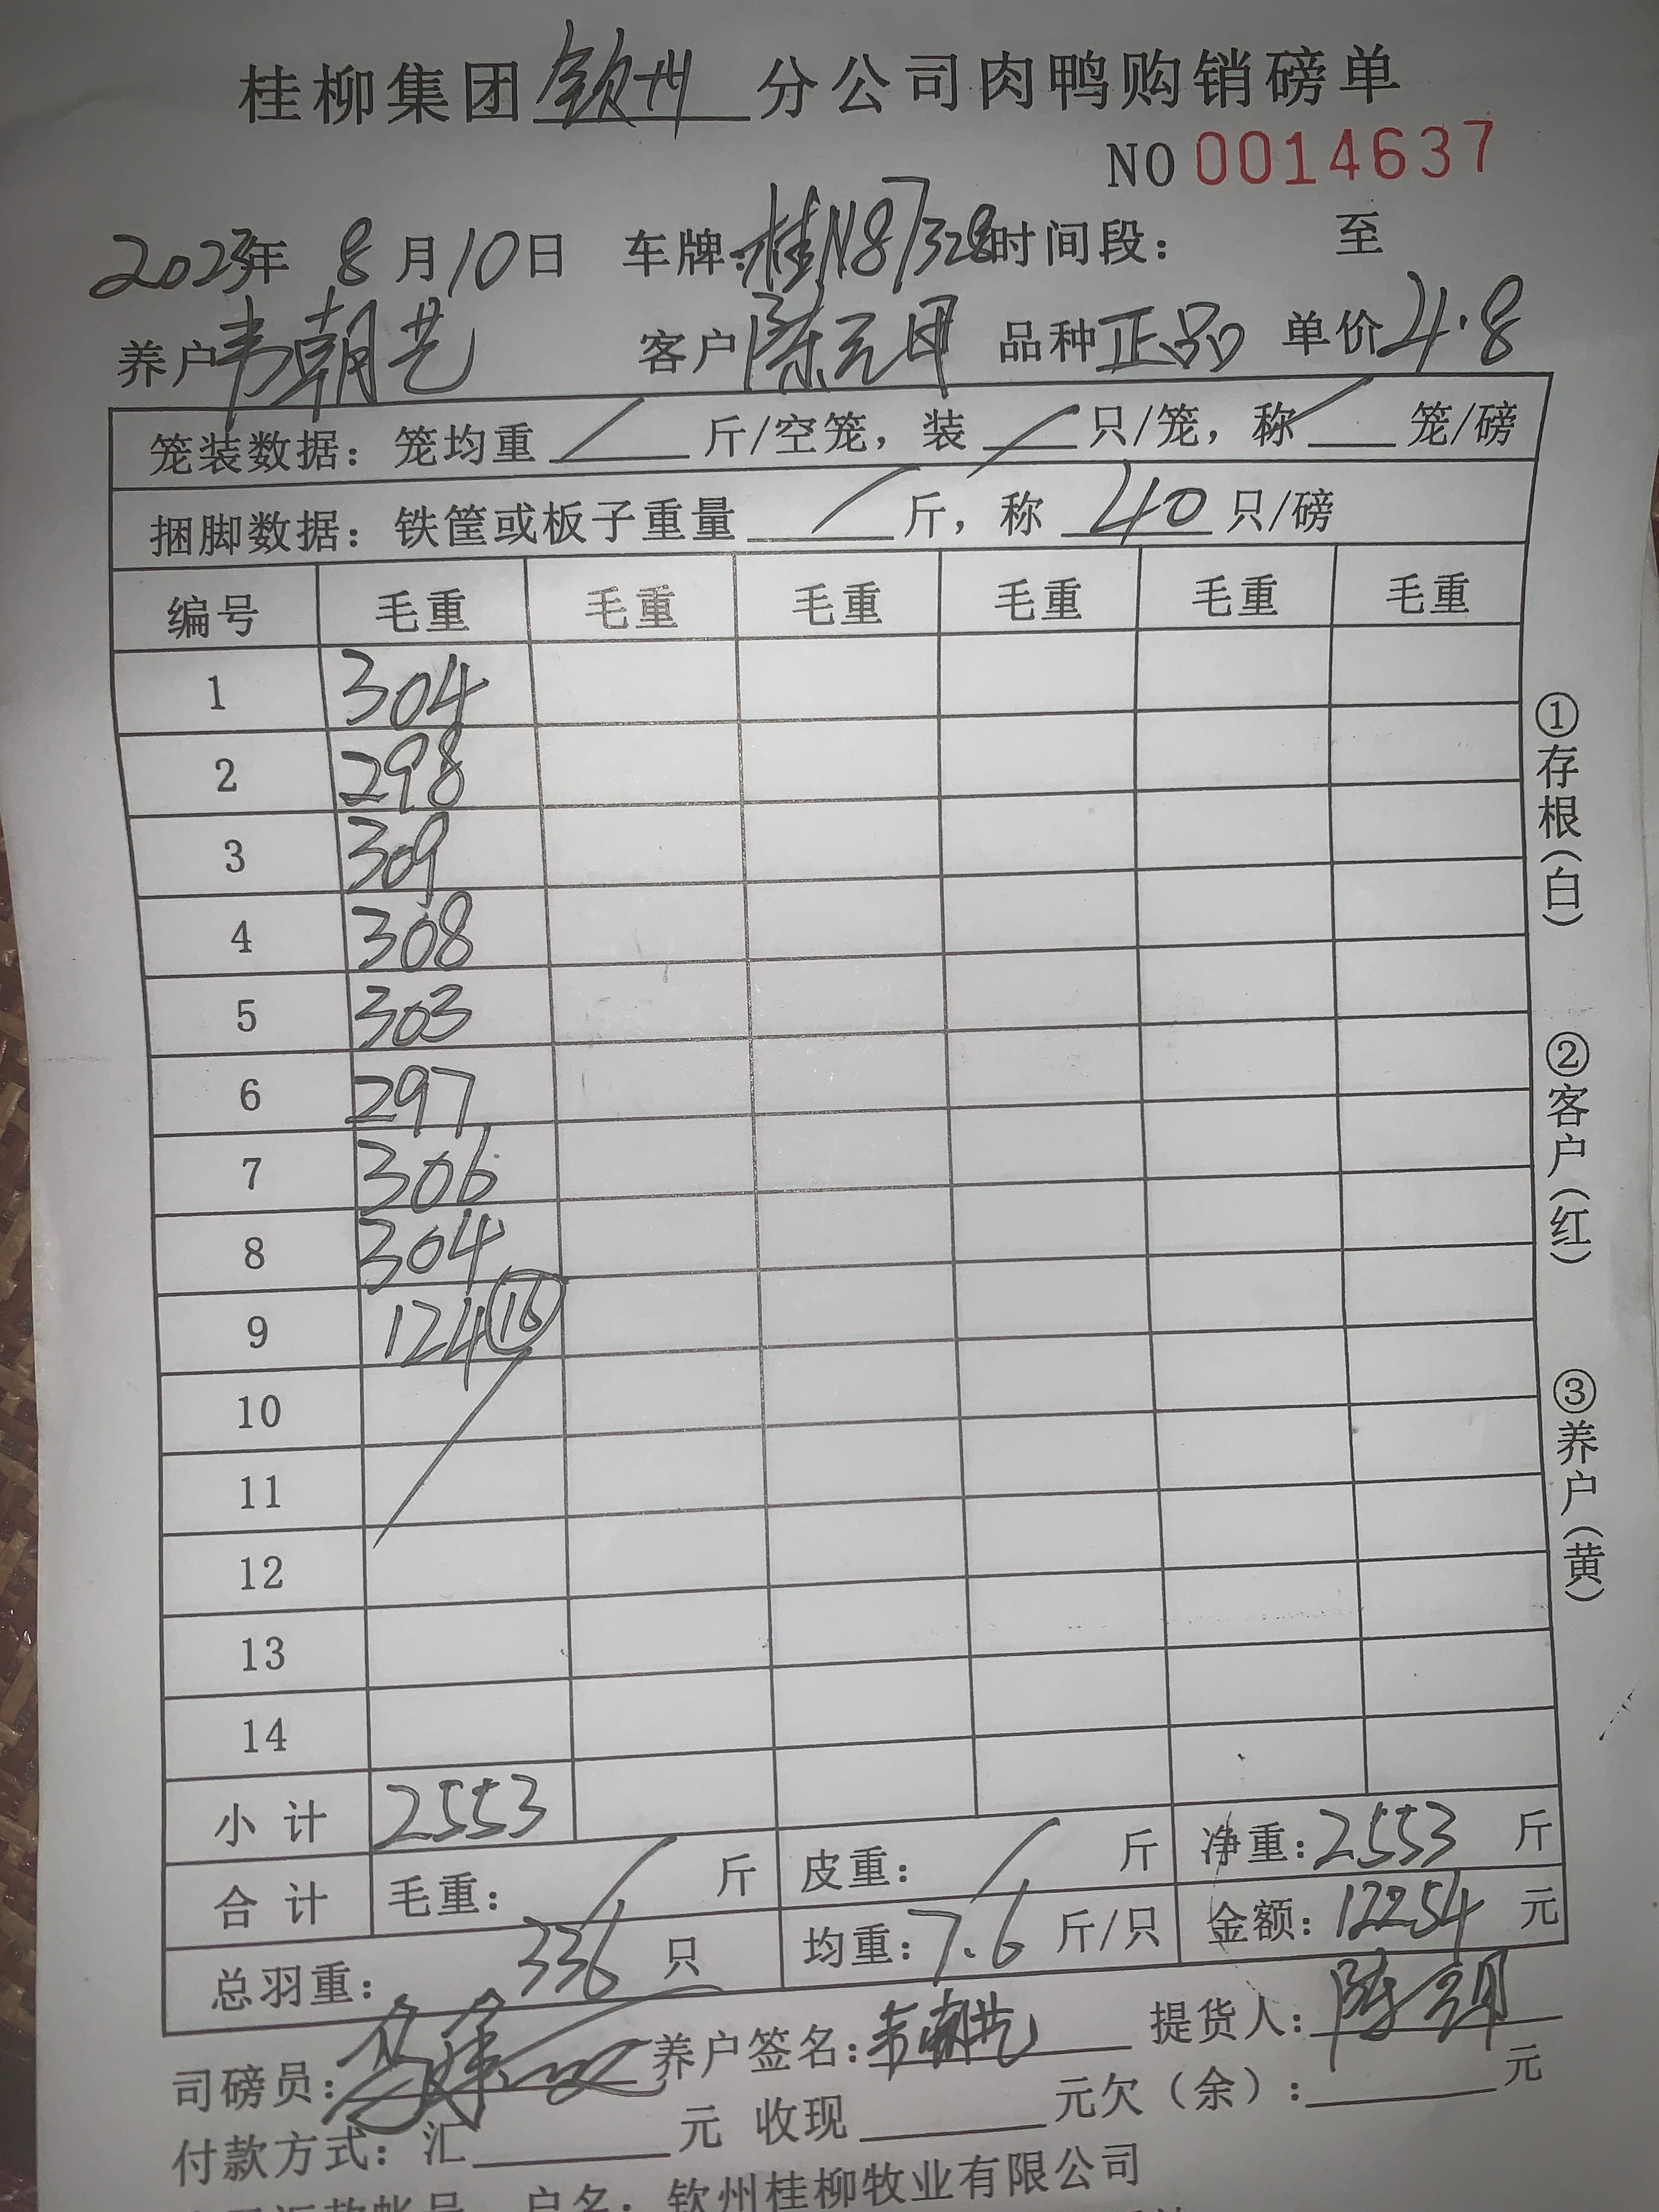 桂柳集团钦州分公司肉鸭购销磅单
NO 0014637
2023年 8月10日 车牌:桂N87328 时间段: 至
养户韦朝艺 客户陈元月 品种正品 单价4.8
笼装数据: 笼均重 / 斤/空笼, 装 / 只/笼, 称 / 笼/磅
捆脚数据: 铁筐或板子重量 / 斤, 称 40 只/磅
编号 毛重 毛重 毛重 毛重 毛重 毛重
1 304
2 298
3 309
4 308
5 303
6 297
7 306
8 304
9 124 16
10
11
12
13
14
小计 2553
合计 毛重: / 斤 皮重: / 斤 净重: 2553 斤
总羽重: 336 只 均重: 7.6 斤/只 金额: 12254 元
司磅员: 养户签名: 韦朝艺 提货人: 陈元月
付款方式: 汇 元 收现 元欠(余): 元
户名: 钦州桂柳牧业有限公司
①存根(白)
②客户(红)
③养户(黄)